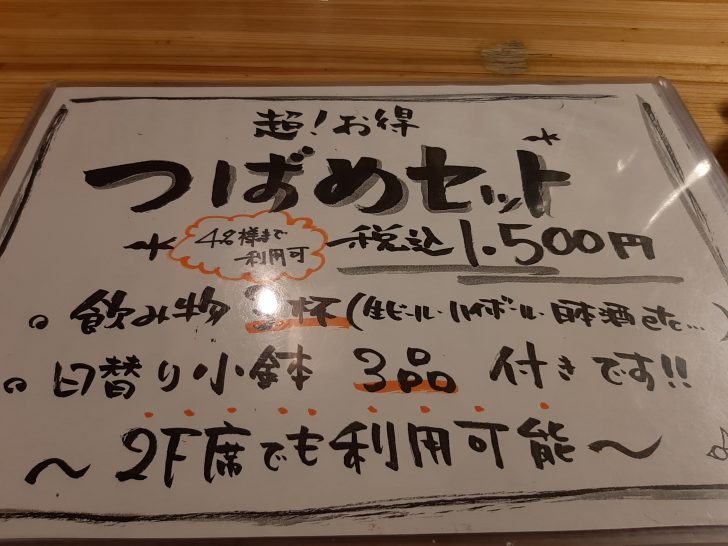 超!お得
つばめセット
4名様まで
利用可
税込 1.500円
。飲み物 3杯(生ビール・ハイボール・日本酒etc...)
。日替り小鉢 3品 付きです!!
〜2F席でも利用可能〜